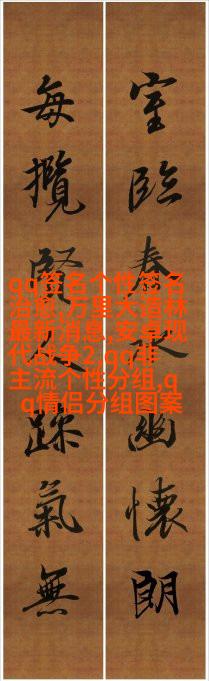 室臨春水幽懷朗
每攬賢氣無
qq签名个性签名
治愈,万里大造林
最新消息,安卓现
代战争2,qq非
主流个性分组,q
q情侣分组图案